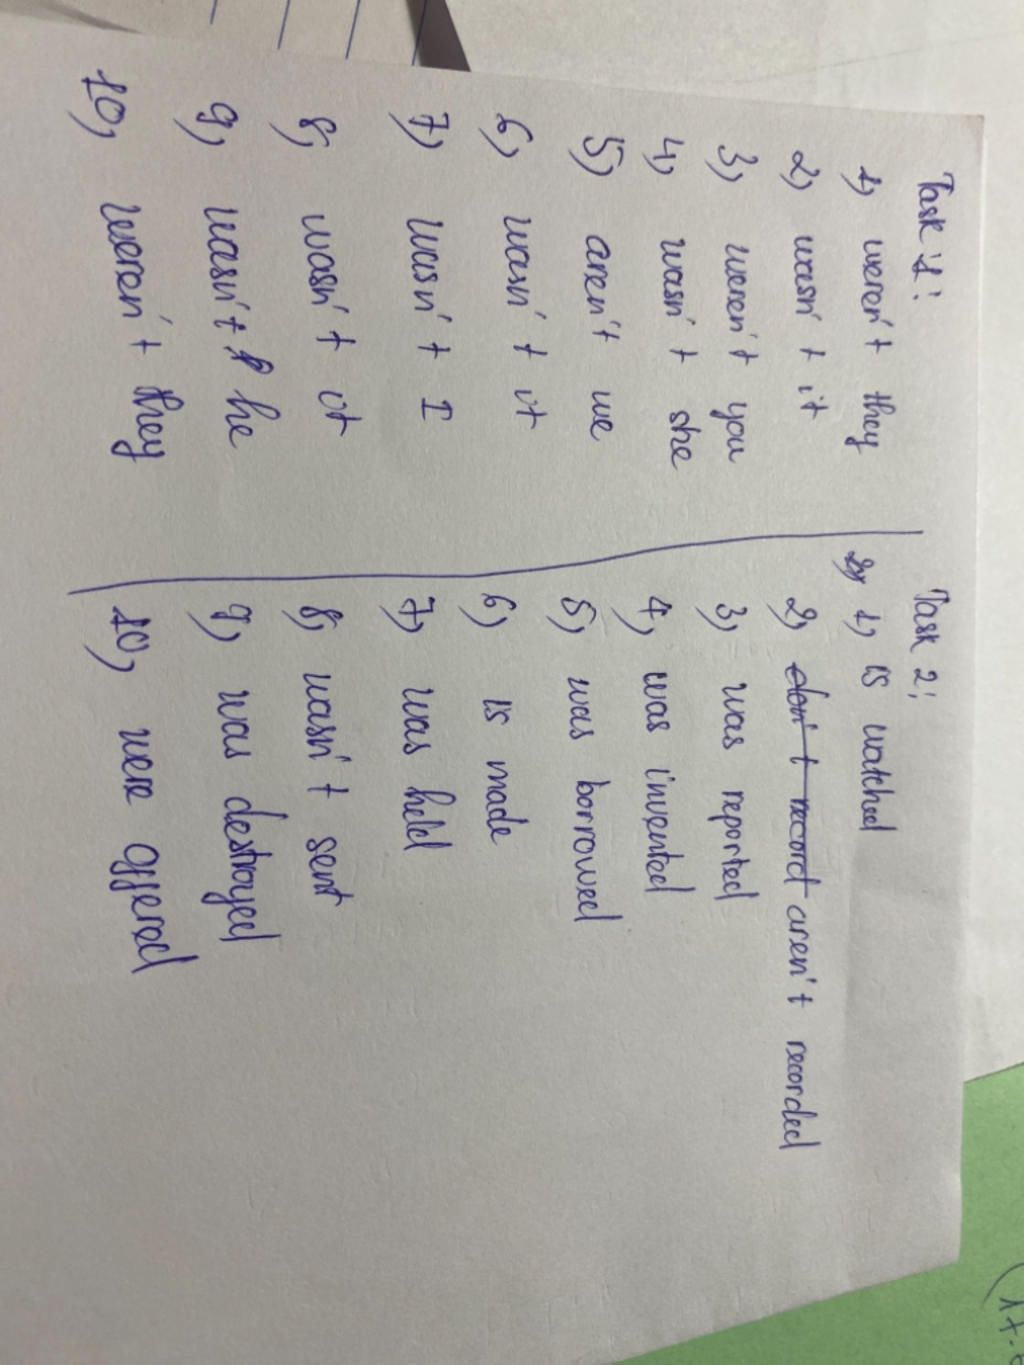 Task 1:
1) weren't they
2) wasn't it
3) weren't you
4) wasn't she
5) aren't we
6) wasn't it
7) wasn't I
8) wasn't it
9) wasn't he
10) weren't they
Task 2:
1) is watched
2) don't record aren't recorded
3) was reported
4) was invented
5) was borrowed
6) is made
7) was held
8) wasn't sent
9) was destroyed
10) were offered